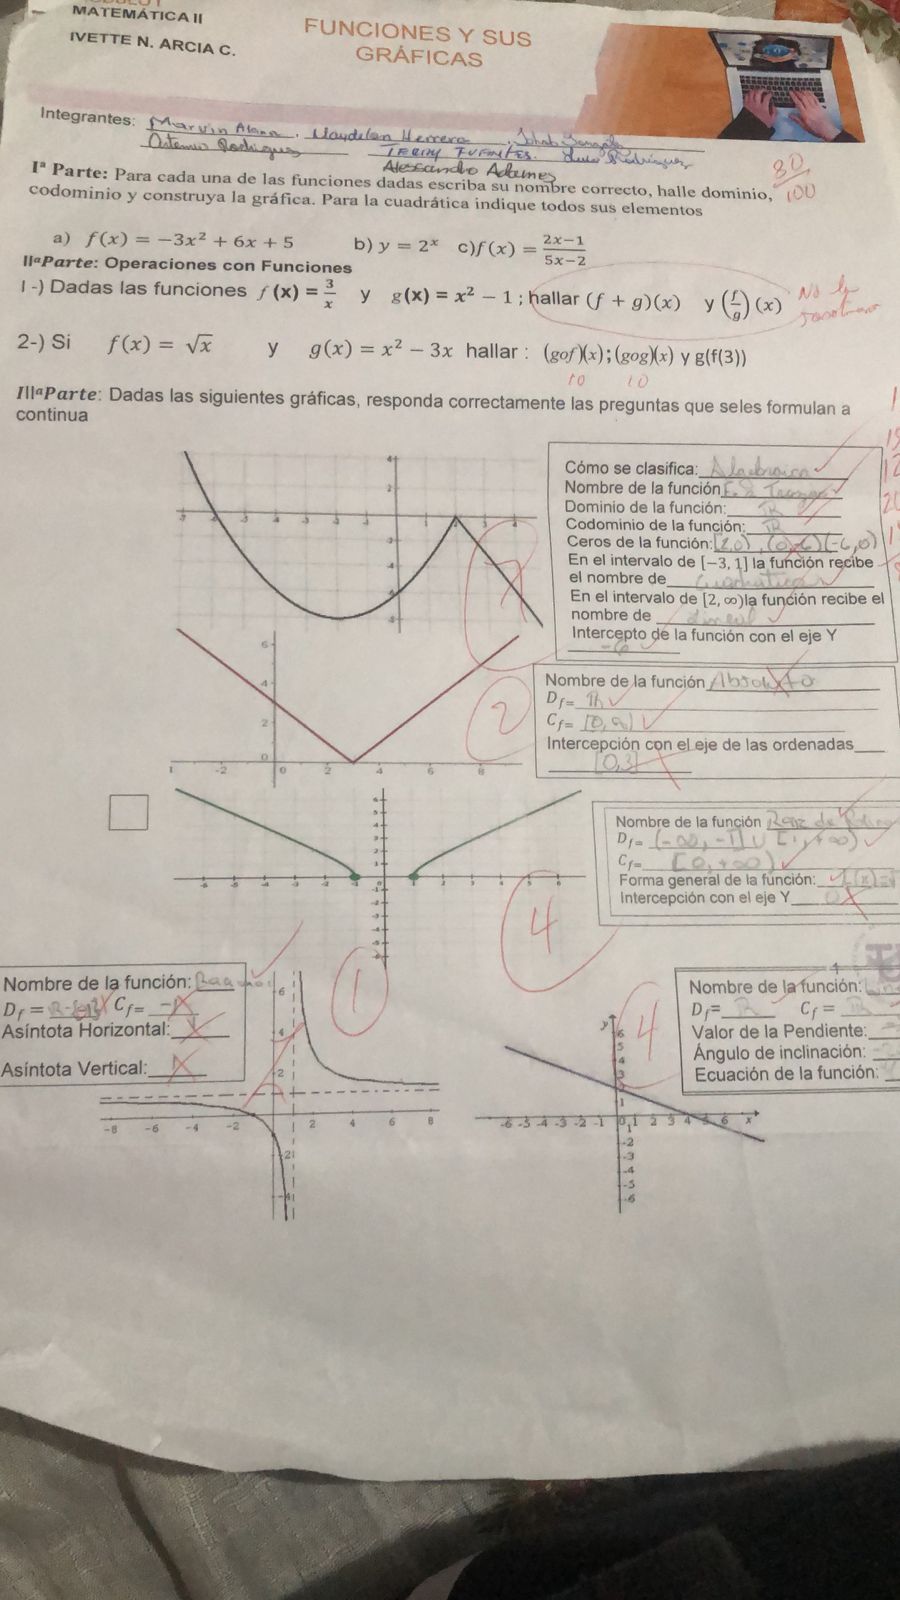 MATEMÁTICA II
IVETTE N. ARCIA C.
FUNCIONES Y SUS
GRÁFICAS
Integrantes: Marvin Alana, Maydelen Herrera,
Artemio Rodriguez Luis Rodríguez
Alessandro Adames
80/100
Iª Parte: Para cada una de las funciones dadas escriba su nombre correcto, halle dominio,
codominio y construya la gráfica. Para la cuadrática indique todos sus elementos
a) f(x) = −3x² + 6x + 5 b) y = 2ˣ c)f(x) = (2x−1)/(5x−2)
IIªParte: Operaciones con Funciones
1-) Dadas las funciones f(x) = 3/x y g(x) = x² − 1 ; hallar (f + g)(x) y (f/g)(x) No la
2-) Si f(x) = √x y g(x) = x² − 3x hallar : (gof)(x); (gog)(x) y g(f(3))
10 10
IIIªParte: Dadas las siguientes gráficas, responda correctamente las preguntas que seles formulan a
continua
Cómo se clasifica: Algebraica
Nombre de la función
Dominio de la función: R
Codominio de la función: R
Ceros de la función: [2,0), (0,-6)(-6,0)
En el intervalo de [−3, 1] la función recibe
el nombre de cuadratica
En el intervalo de [2, ∞)la función recibe el
nombre de Lineal
Intercepto de la función con el eje Y
-6
7
Nombre de la función Absoluto
Df= R
Cf= [0,∞)
Intercepción con el eje de las ordenadas
[0,3]
2
Nombre de la función Raiz de
Df= (-∞, -1] U [1, +∞)
Cf= [0, +∞)
Forma general de la función:
Intercepción con el eje Y 0
4
Nombre de la función:
Df = Cf=
Asíntota Horizontal:
Asíntota Vertical:
1
Nombre de la función:
Df= R Cf = R
Valor de la Pendiente:
Ángulo de inclinación:
Ecuación de la función:
4
-8 -6 -4 -2 2 4 6 8
-6 -5 -4 -3 -2 -1 0 1 2 3 4 5 6 x